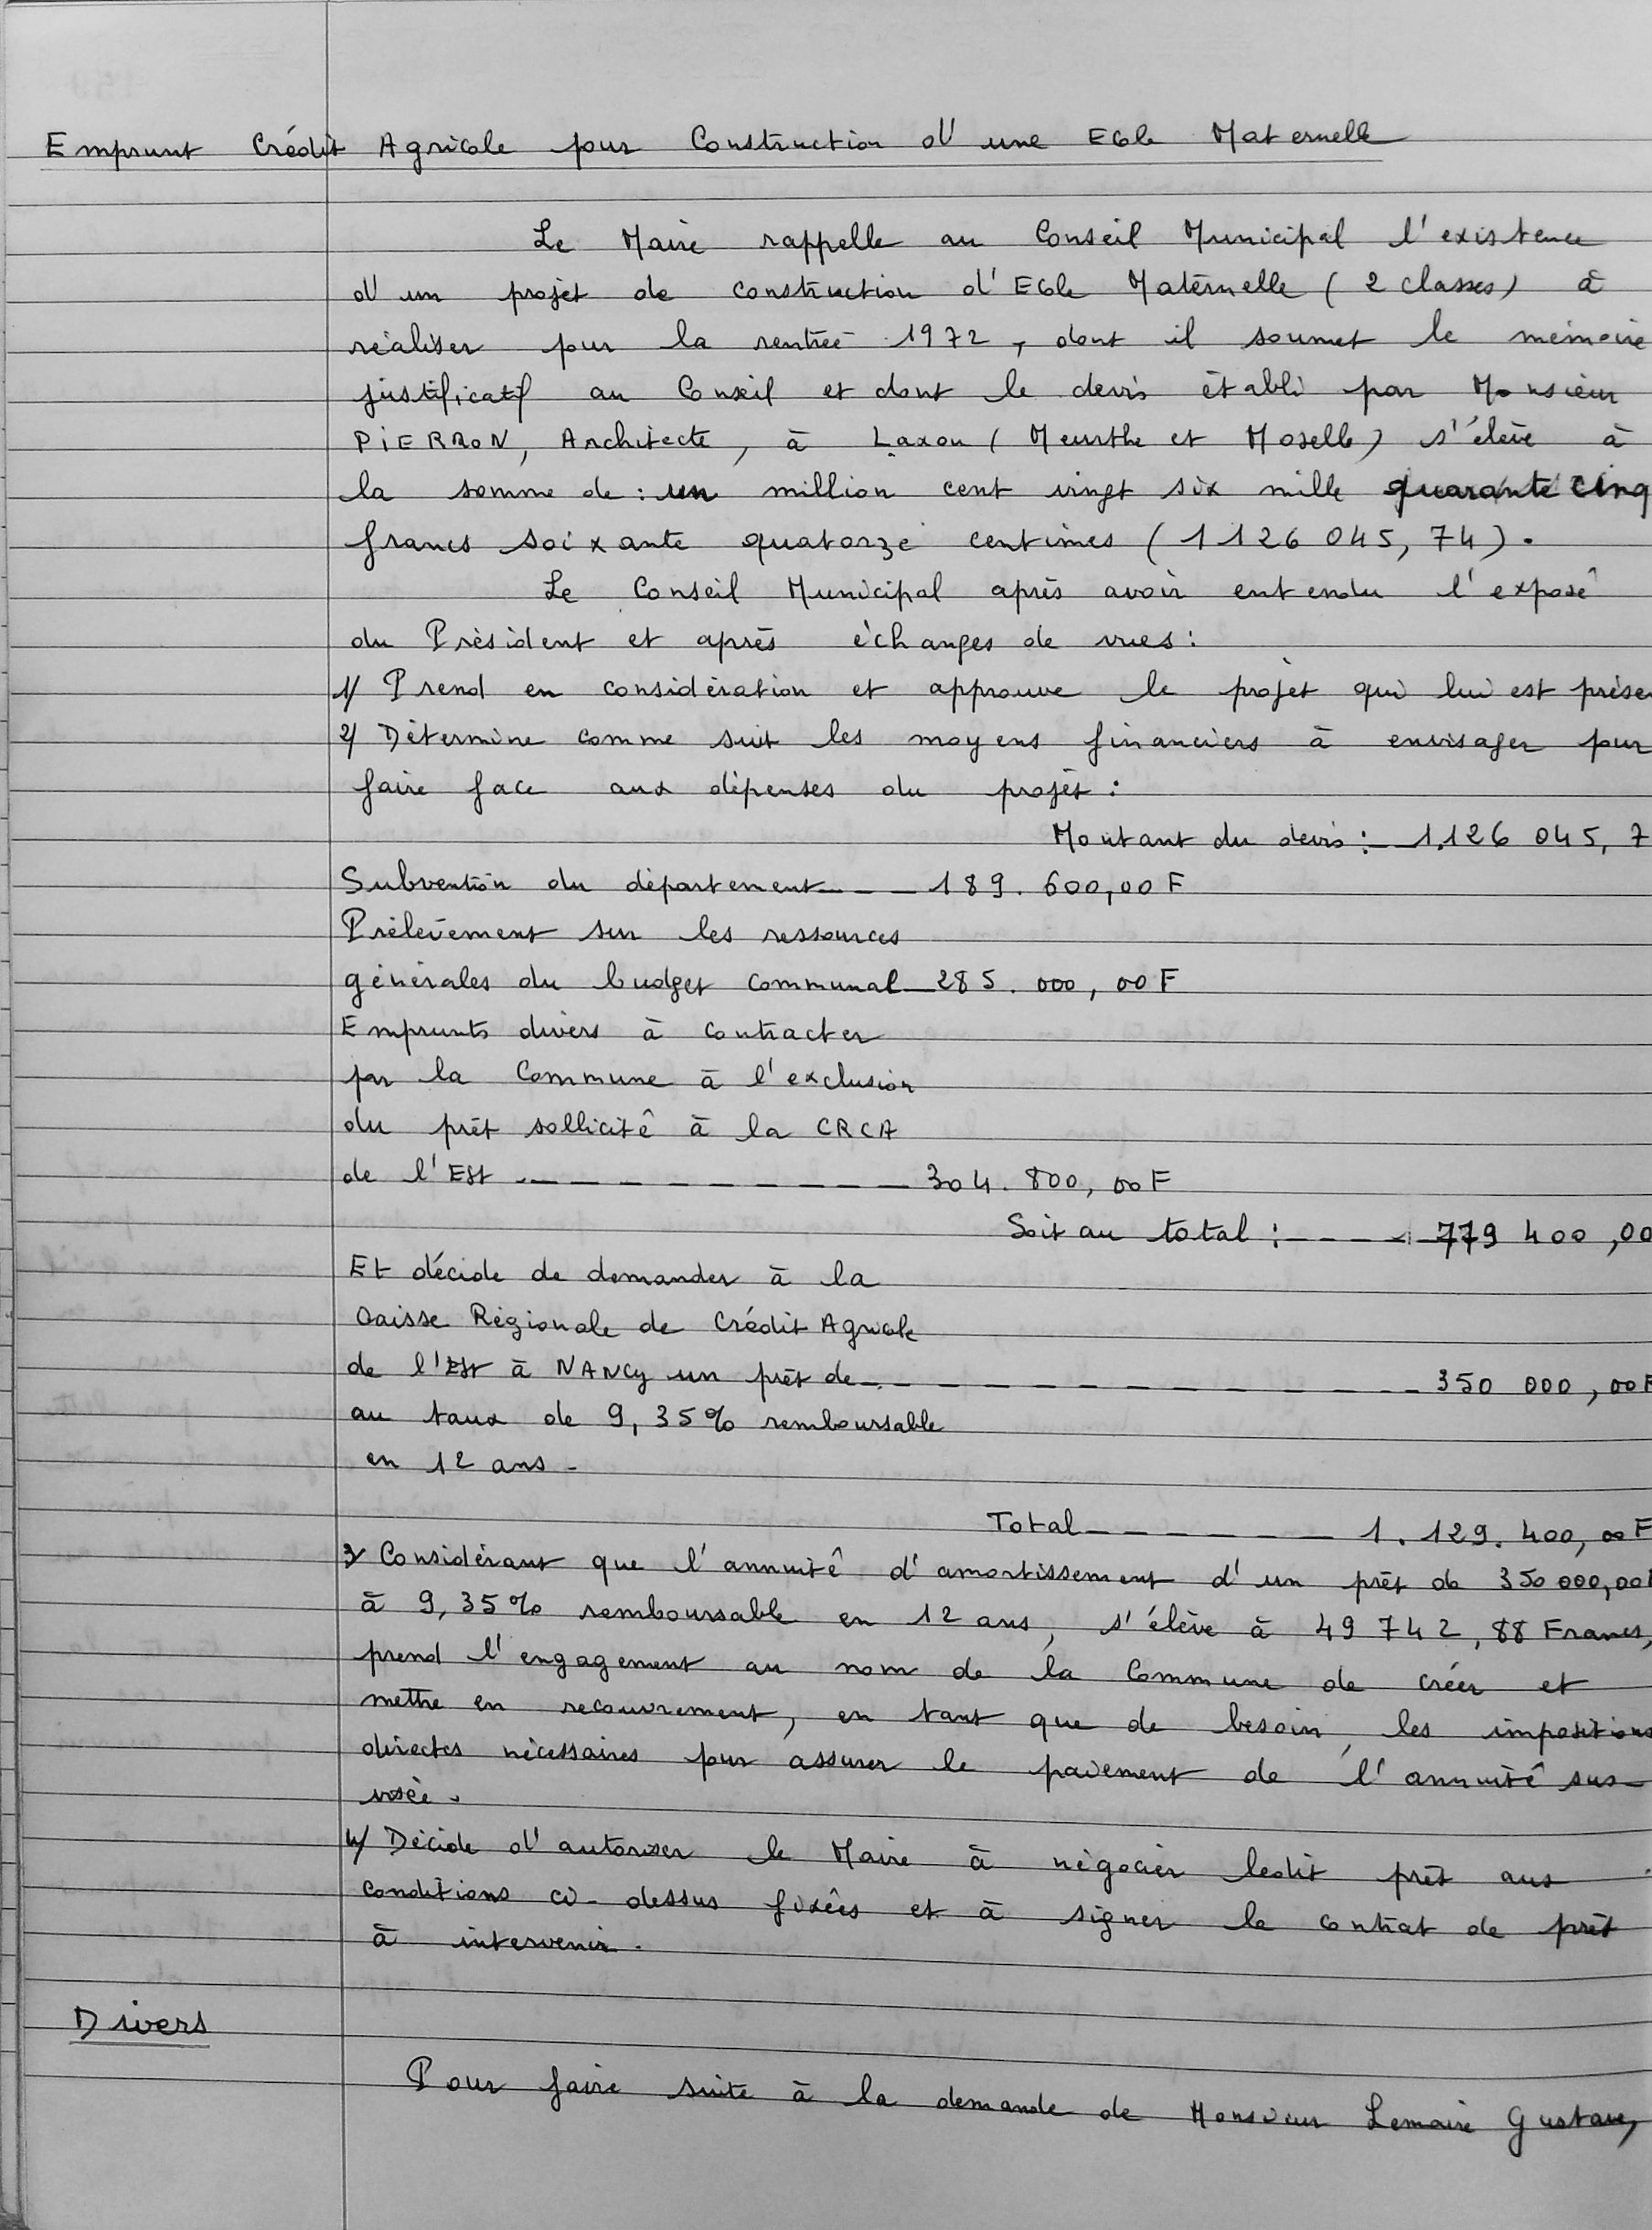 Emprunt Crédit Agricole pour Construction d'une Ecole Maternelle
Le Maire rappelle au Conseil Municipal l'existence
d'un projet de construction d'Ecole Maternelle (2 classes) à
réaliser pour la rentrée 1972, dont il soumet le mémoire
justificatif au Conseil et dont le devis établi par Monsieur
PIERRON, Architecte, à Laxou (Meurthe et Moselle) s'élève à
la somme de : un million cent vingt six mille quarante cinq
francs soixante quatorze centimes (1 126 045, 74).
Le Conseil Municipal après avoir entendu l'exposé
du Président et après échanges de vues :
1/ Prend en considération et approuve le projet qui lui est prése
2/ Détermine comme suit les moyens financiers à envisager pour
faire face aux dépenses du projet :
Montant du devis : 1.126 045, 7
Subvention du département --- 189. 600,00 F
Prélèvement sur les ressources
générales du budget communal 285. 000, 00 F
Emprunts divers à contracter
par la Commune à l'exclusion
du prêt sollicité à la CRCA
de l'Est ---------- 304. 800, 00 F
Soit au total : ---- 779 400 ,00
Et décide de demander à la
Caisse Régionale de Crédit Agricole
de l'Est à NANCY un prêt de -------------- 350 000 ,00 F
au taux de 9, 35 % remboursable
en 12 ans -
Total ------ 1. 129. 400, 00 F
3/ Considérant que l'annuité d'amortissement d'un prêt de 350 000,00 F
à 9, 35 % remboursable en 12 ans, s'élève à 49 742, 88 Francs,
prend l'engagement au nom de la Commune de créer et
mettre en recouvrement, en tant que de besoin, les impositions
directes nécessaires pour assurer le paiement de l'annuité sus-
visée.
4/ Décide d'autoriser le Maire à négocier ledit prêt aux
conditions ci-dessus fixées et à signer le contrat de prêt
à intervenir.
Divers
Pour faire suite à la demande de Monsieur Lemaire Gustave,